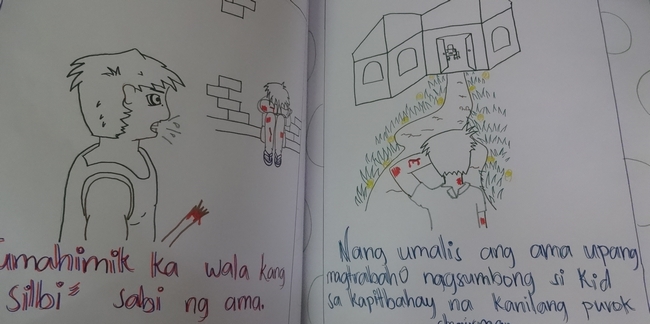 umahimik ka wala kang
silbi" sabi ng ama.
Nang umalis ang ama upang
magtrabaho nagsumbong si Kid
sa kapitbahay na kanilang purok